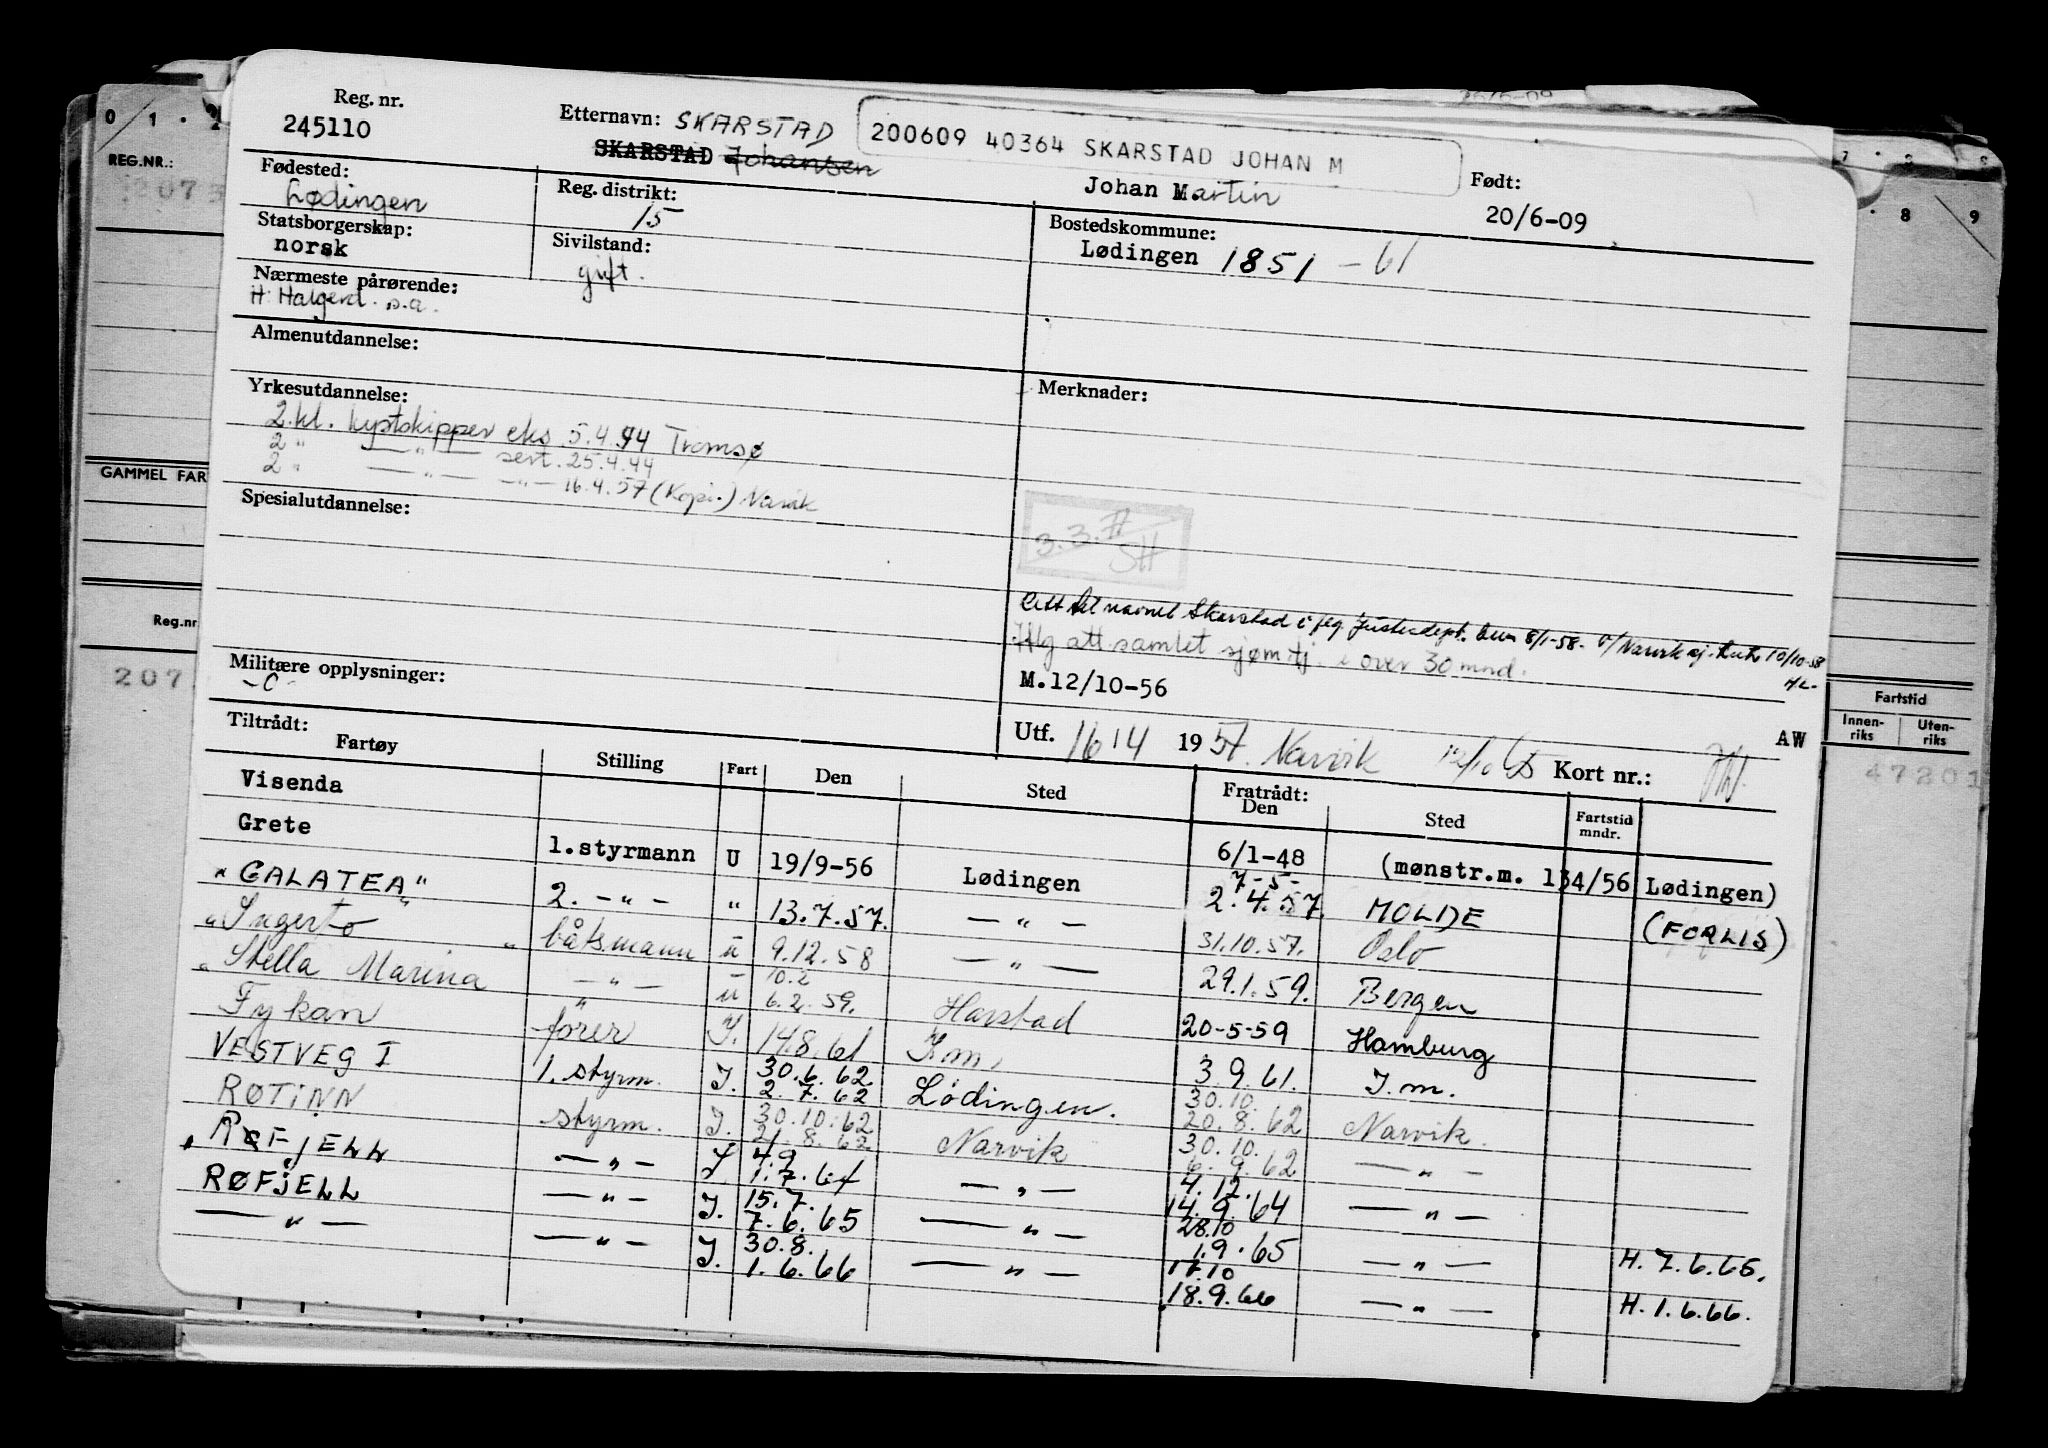 Reg. nr.
245110
Etternavn: SKARSTAD
SKARSTAD Johansen
200609 40364 SKARSTAD JOHAN M
Johan Martin
Født:
20/6-09
Fødested:
Lødingen
Reg. distrikt:
15
Bostedskommune:
Lødingen 1851 - 61
Statsborgerskap:
norsk
Sivilstand:
gift.
Nærmeste pårørende:
H: Halgerd. s.a.
Almenutdannelse:
Yrkesutdannelse:
2. kl. kystskipper eks 5.4.44 Tromsø
2 " — " — sert. 25.4.44
2 " — " — — " — 16.4.57 (Kopi.) Narvik
Merknader:
Spesialutdannelse:
3.3.
SH
til navnet Skarstad i flg. Justisdept. 8/1-58. Narvik 10/10-58
Iflg att. samlet sjømtj. i over 30 mnd.
Militære opplysninger:
M.12/10-56
Utf. 16/4 1957. Narvik
AW
Kort nr.:
Tiltrådt:
Fartøy Stilling Fart Den Sted Fratrådt: Den Sted Fartstid mndr.
Visenda 6/1-48
Grete 1.styrmann U 19/9-56 Lødingen 7-5- 2.4.57. (mønstr.m. 134/56 Lødingen)
"GALATEA" 2. - " - " 13.7.57. — " — MOLDE (FORLIS)
"Ingerto" båtsmann u 9.12.58 — " — 31.10.57. Oslo
"Stella Marina" — " — u 10.2 6.2.59. Harstad 29.1.59. Bergen
Fykan fører I. 14.8.61 I.m. 20-5-59 Hamburg
VESTVEG I 1. styrm. I. 30.6.62 2.7.62 Lødingen. 3.9.61. I.m.
RØTINN styrm. I. 30.10.62 21.8.62 Narvik 30.10. 20.8.62 Narvik.
RØFJELL — " — I 4.9 1.7.64 — " — 30.10. 6.9.62 — " —
RØFJELL — " — I. 15.7. 7.6.65 — " — 4.12. 14.9.64 — " —
— " — — " — I. 30.8. 1.6.66 — " — 28.10 1.9.65 — " — H. 7.6.65.
11.10 18.9.66 — " — H. 1.6.66.
REG.NR.:
GAMMEL FAR
Reg.nr
207
Fartstid
Innen-riks
Uten-riks
47201